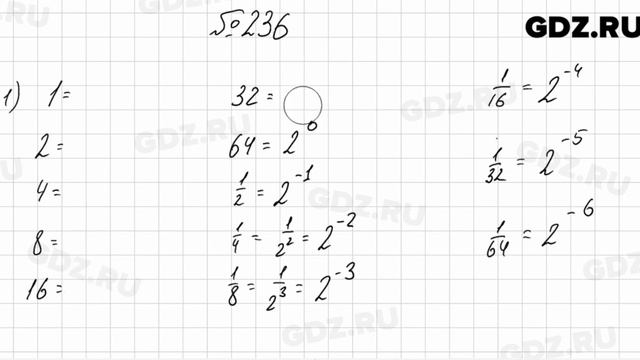 №236
GDZ.RU
1) 1=
2=
4=
8=
16=
32=
64= 2^0
1/2 = 2^-1
1/4 = 1/2^2 = 2^-2
1/8 = 1/2^3 = 2^-3
1/16 = 2^-4
1/32 = 2^-5
1/64 = 2^-6
GDZ.RU
GDZ.RU
GDZ.RU
GDZ.RU
GDZ.RU
GDZ.RU
GDZ.RU